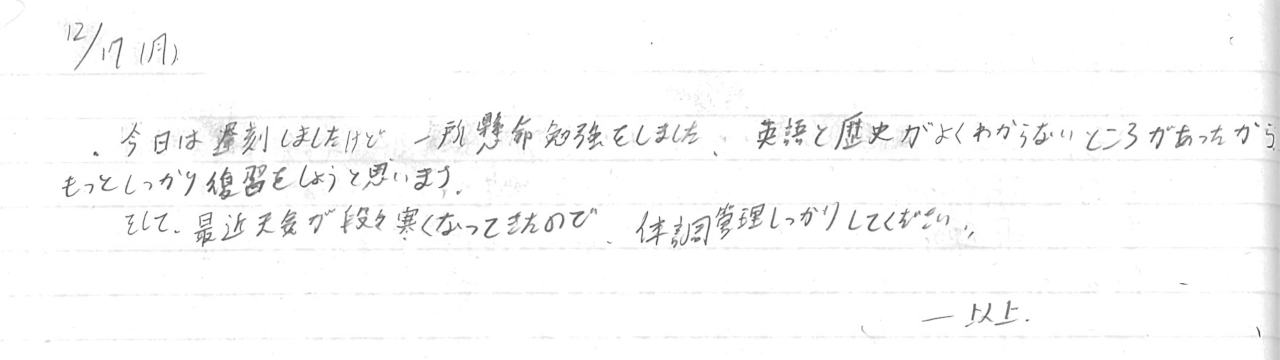 12/17 (月)
今日は遅刻しましたけど一所懸命勉強をしました、英語と歴史がよくわからないところがあったから
もっとしっかり復習をしようと思います。
そして、最近天気が段々寒くなってきたので、体調管理しっかりしてください。
一以上.